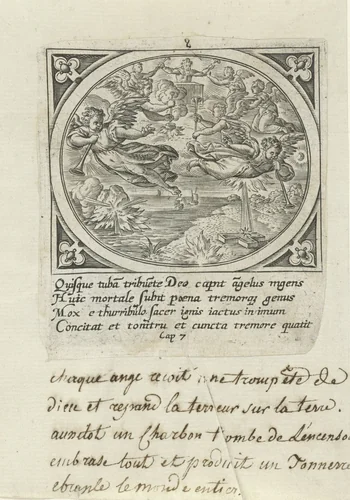 8
Quisque tubã tribuẽte Deo capit ãgelus ingens
Huic mortale subit poena tremorq; genus
Mox e thurribulo sacer ignis iactus in imum
Concitat et tonitru et cuncta tremore quatit
Cap 7
chaque ange reçoit une trompette de
dieu et repand la terreur sur la terre.
aussitot un charbon tombe de l'encenso
embrase tout et produit un Tonnerre
ebranle le monde entier.